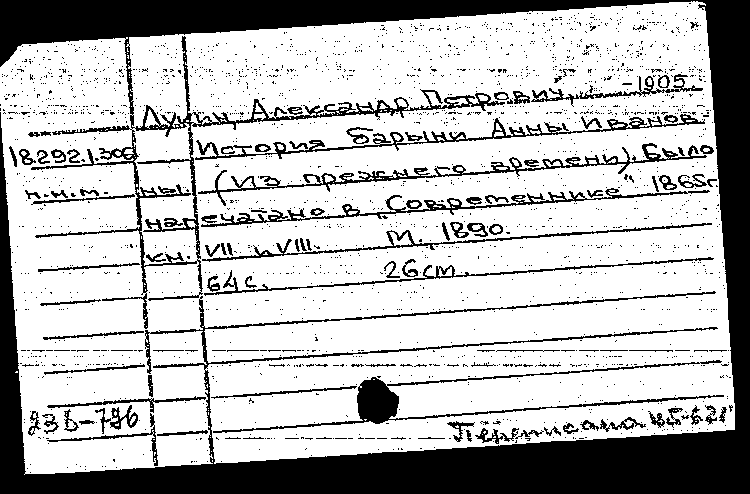 Лукин, Александр Петрович, -1905
18.292.1.306 История барыни Анны Иванов-
н.и.т. ны. (Из прежнего времени). Было
напечатано в „Современнике" 1865г
кн. VII и VIII. М., 1890.
64с. 26см.
Переписана